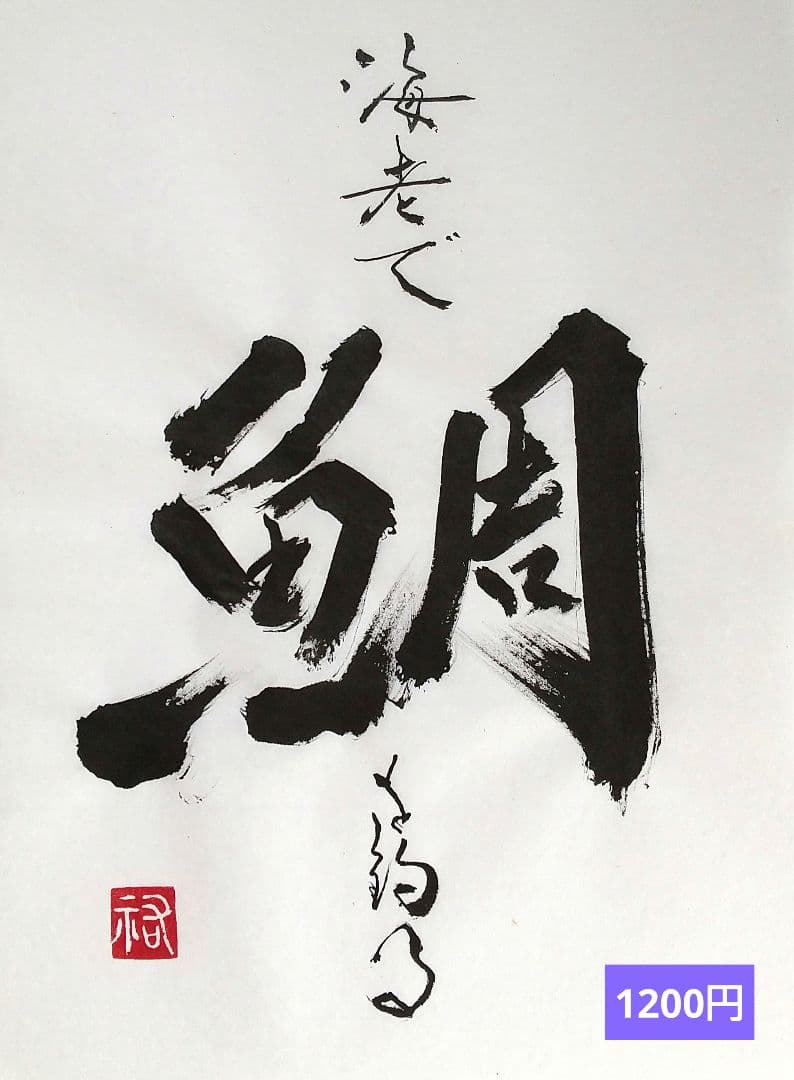 海老で
鯛
を釣る
1200円